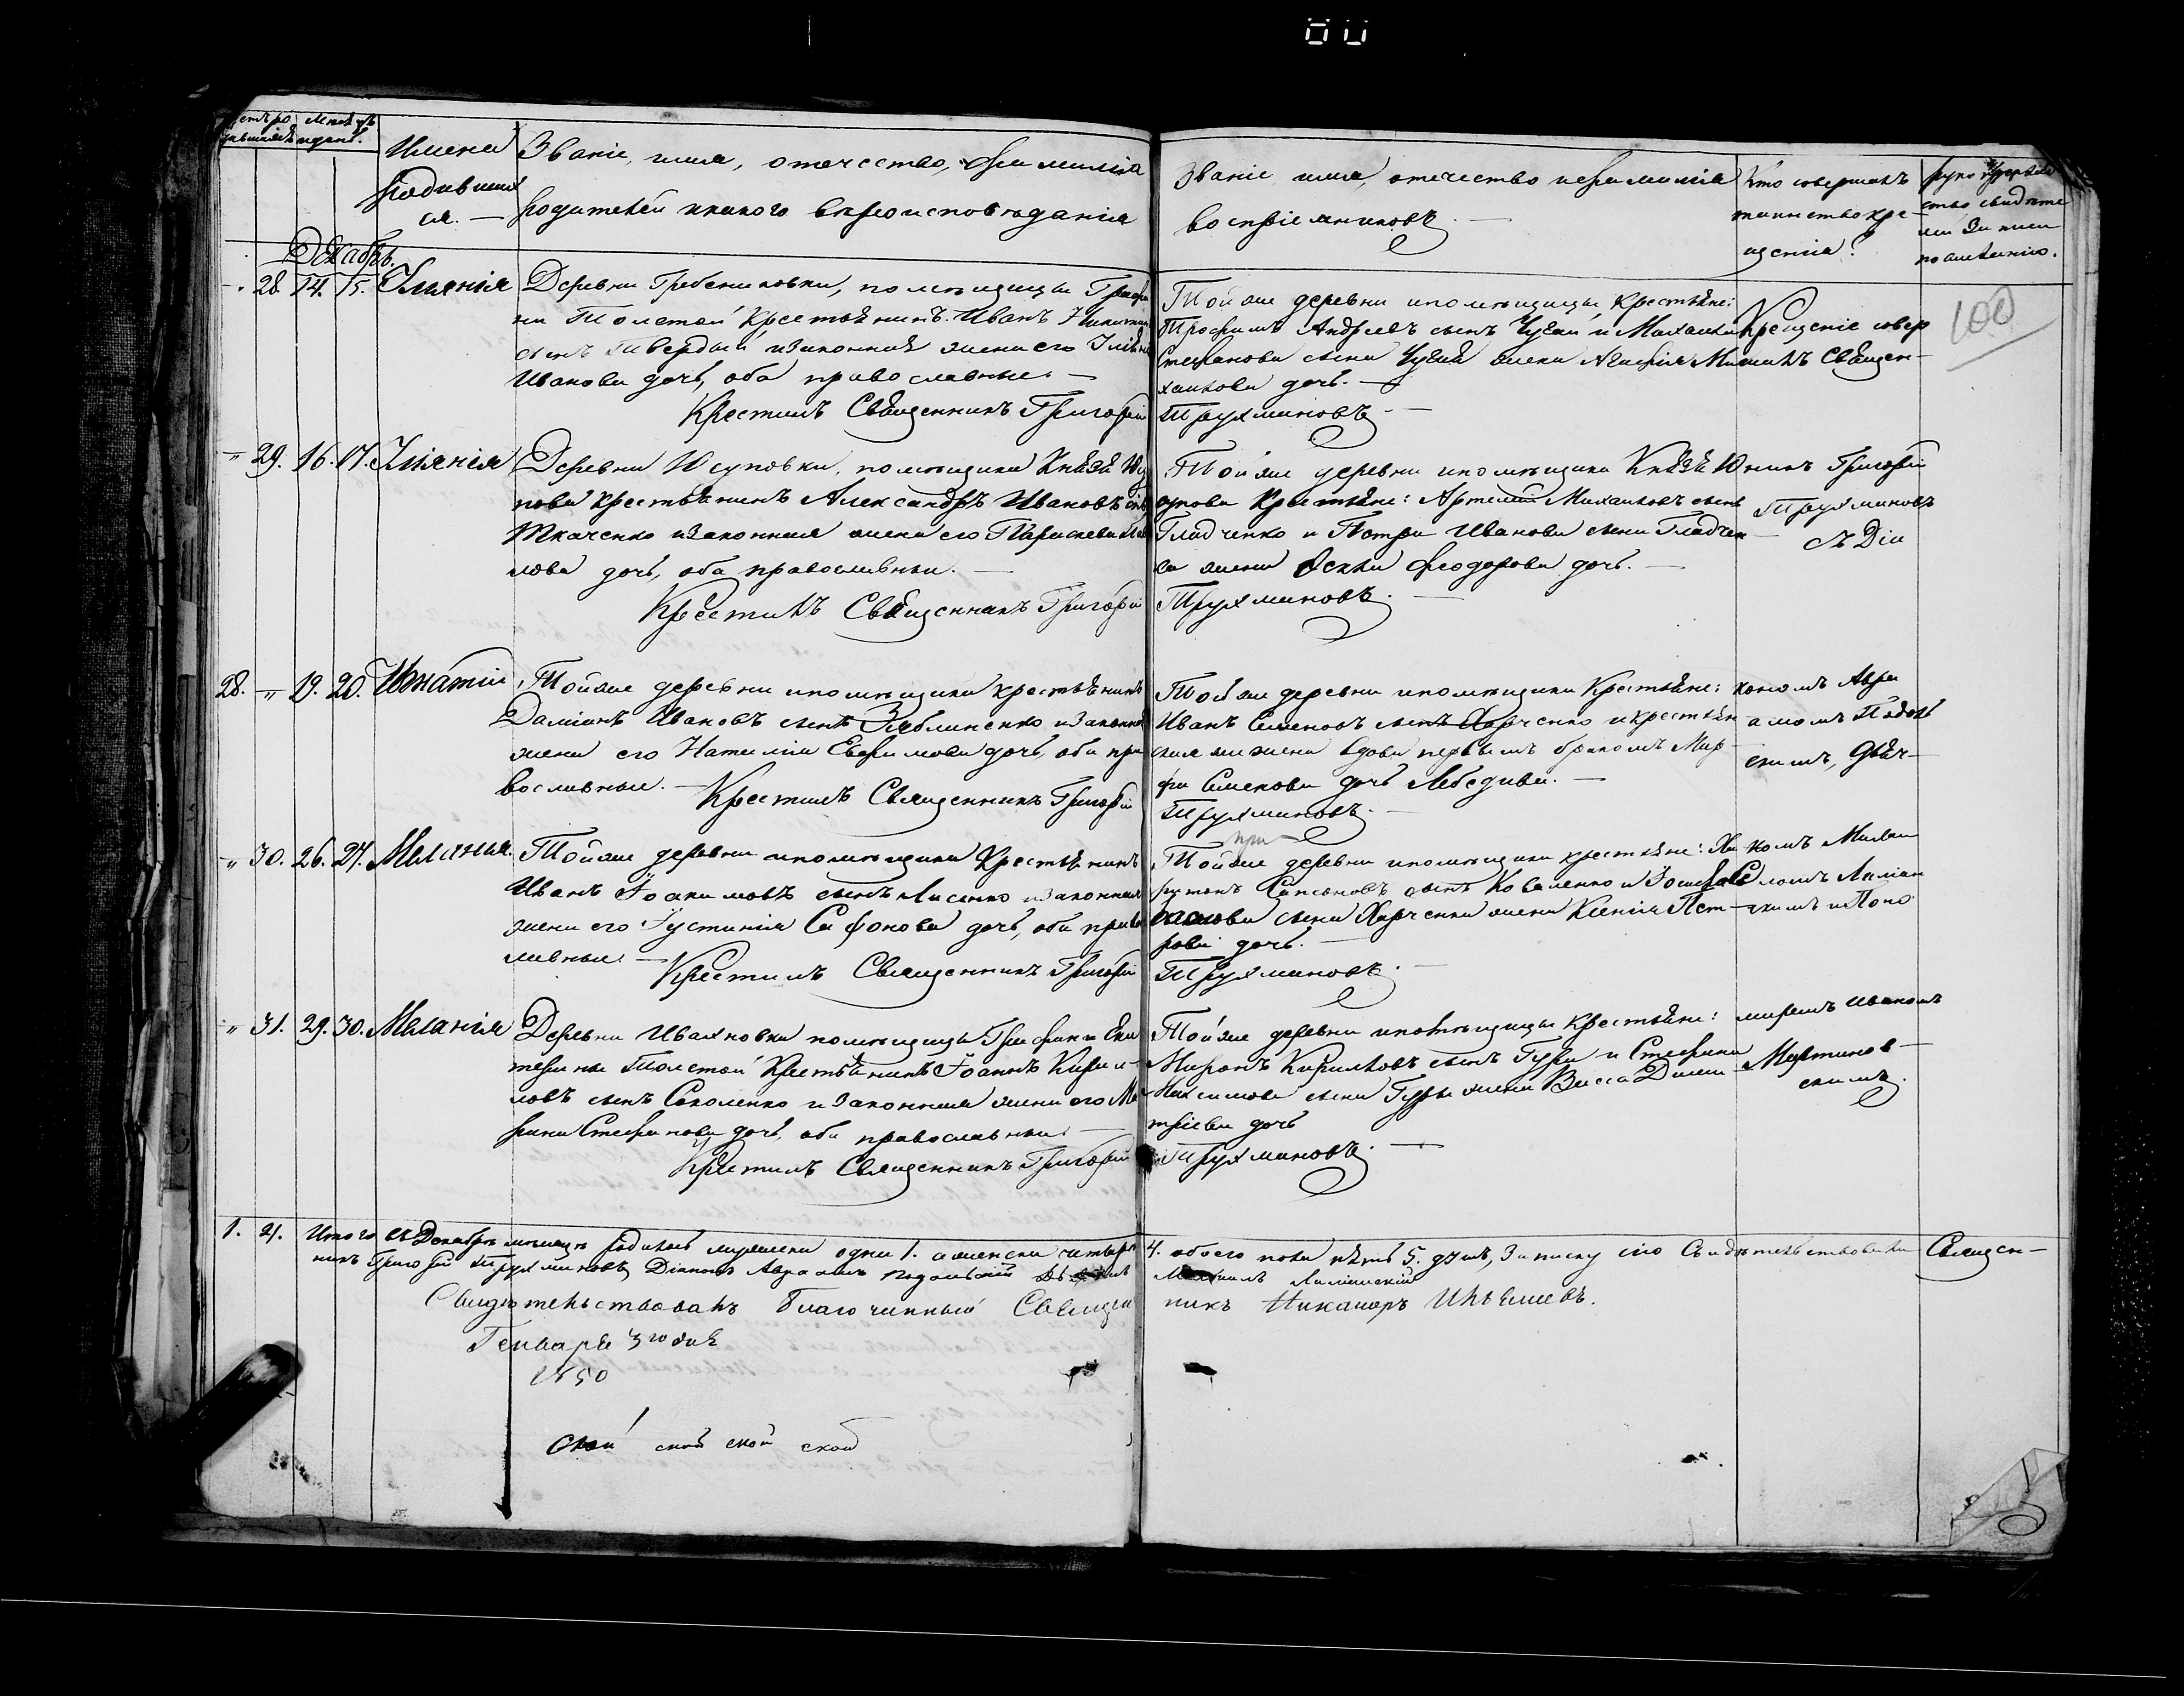 Имена
родивших
ся. —
Званіе, имя, отечество, фамилія
родителей и какого вероисповѣданія
Званіе имя, отечество и фамилія
воспріемниковъ. —
Кто совершалъ
таинство кре-
щенія?
руко
ство свидѣте
по желанію.
Декабрь.
100
28. 14. 15. Іуліанія
Деревни Гребениковки, помѣщицы Графи
ни Толстой Крестьянинъ Иванъ Никитинъ
сынъ Твердый и законная жена его
Иванова дочь, оба православные. —
Крестилъ Священникъ Григорій
Той же деревни и помѣщицы, крестьяне:
Трофимъ Андреевъ сынъ Чуй и Михаила
Стефанова сына жена Агафія Ми
хаилова дочь. —
Трухмановъ. —
Крещеніе совер
шалъ Священ-
" 29. 16. 17. Іуліанія
Деревни Юсуповки, помѣщика Князя Юсу
пова крестьянинъ Александръ Ивановъ сынъ
Ткаченко и законная жена его Параскева
лова дочь, оба православные. —
Крестилъ Священникъ Григорій
Той же деревни и помѣщика Князя Ю
супова Крестьяне: Артемій Михаиловъ сынъ
Гладченко и Петра Иванова сына Гладчен
ка жена Феодорова дочь. —
Трухмановъ. —
никъ Григорій
Трухмановъ
съ Діа
28. — " 19. 20. Игнатій
Той же деревни и помѣщика крестьянинъ
Даміанъ Ивановъ сынъ Зяблиненко и законная
жена его Наталія Евфимова дочь, оба пра
вославные. —
Крестилъ Священникъ Григорій
Той же деревни и помѣщика Крестьяне:
Иванъ Семеновъ сынъ Харченко и крестьян
ская жена вдова первымъ бракомъ Мар-
фа Семенова дочь Лебедива. —
Трухмановъ. —
кономъ Авра
амомъ Подоль
скимъ, Дьяч-
" 30. 26. 27. Меланія.
Той же деревни и помѣщика Крестьянинъ
Иванъ Іоакимовъ сынъ Лисенко и законная
жена его Іустинія Сафонова дочь, оба право
славные. —
Крестилъ Священникъ Григорій
при
Той же деревни и помѣщика крестьяне: Ха
ритонъ сынъ Коваленко и
сына Харченка жена Ксенія Пет-
рова дочь. —
Трухмановъ. —
комъ Михаи
ломъ Лиман
скимъ и Поно
" 31. 29. 30. Меланія
Деревни Ивахновки помѣщицы Графини Ека
терины Толстой Крестьянинъ Іоаннъ Кири-
ловъ сынъ Соколенко и законная жена его Ма
рина Стефанова дочь, оба православные. —
Крестилъ Священникъ Григорій
Той же деревни и помѣщицы Крестьяне:
Миронъ Кириловъ сынъ Гура и Стефана
Максимова сына Гуры жена Васса Дими
тріева дочь
Трухмановъ. —
маремъ Иваномъ
Мартинов-
скимъ.
1. 4. Итого въ Декабрѣ мѣсяцѣ родилось мужеска одна 1. а женска четыри 4. обоего пола пять 5. душъ, Записку сію Свидѣтельствовали Священ-
никъ Григорій Трухмановъ Діаконъ Авраамъ Подольскій Михаилъ Лиманскій
Свидѣтельствовалъ Благочинный Священникъ Никаноръ Ильяшевъ.
Генваря 3го дня
1850
ской ской ской ской